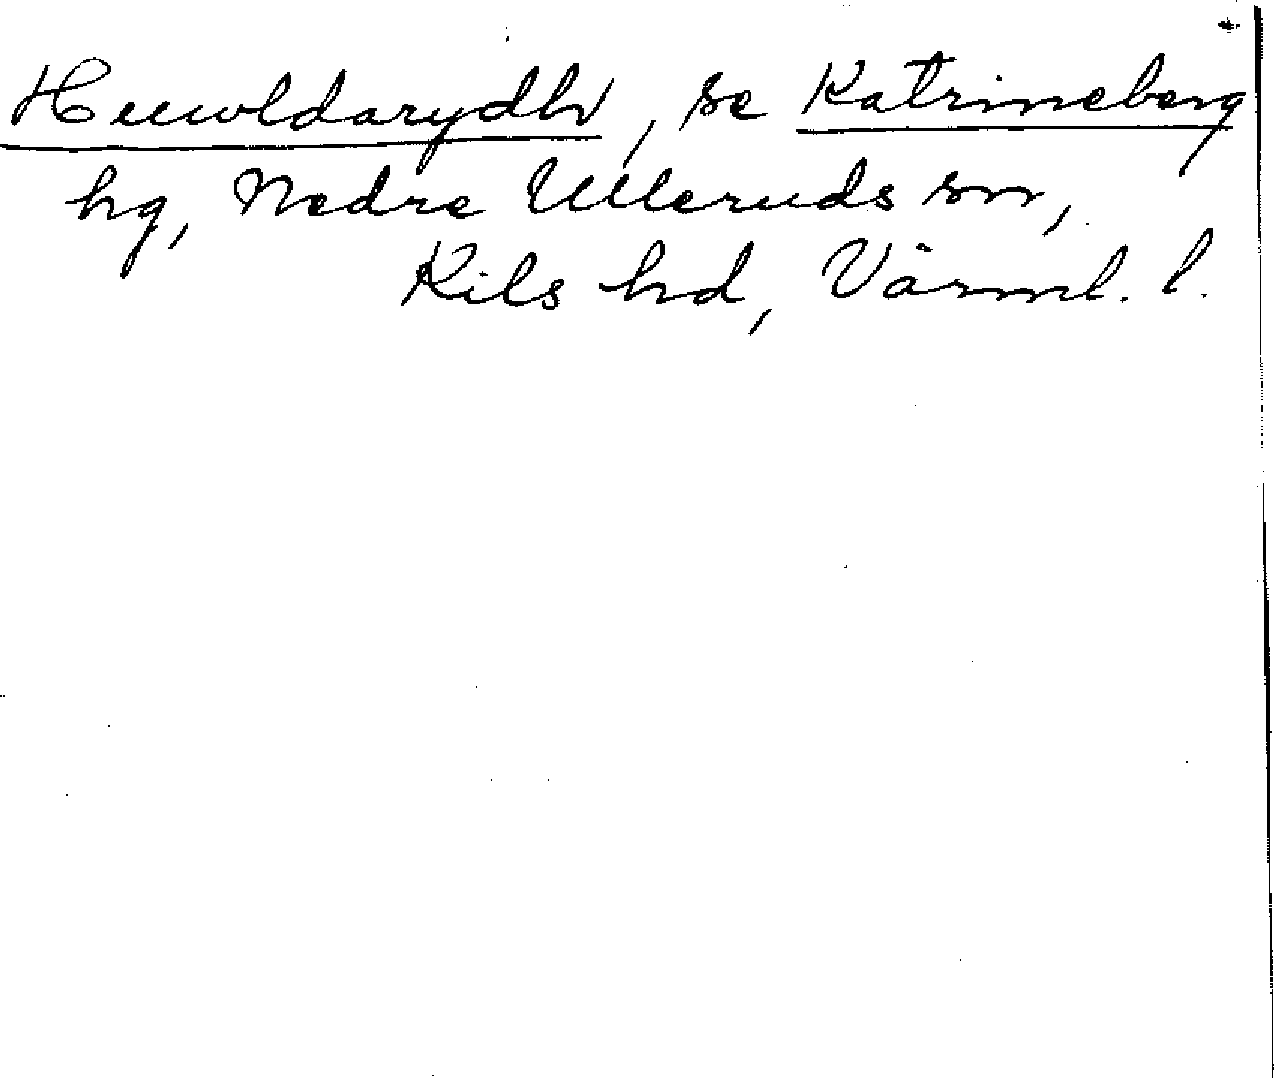 Heuoldarydh, se Katrineberg
hg, Nedre Ulleruds sn,
Kils hd, Värml. l.